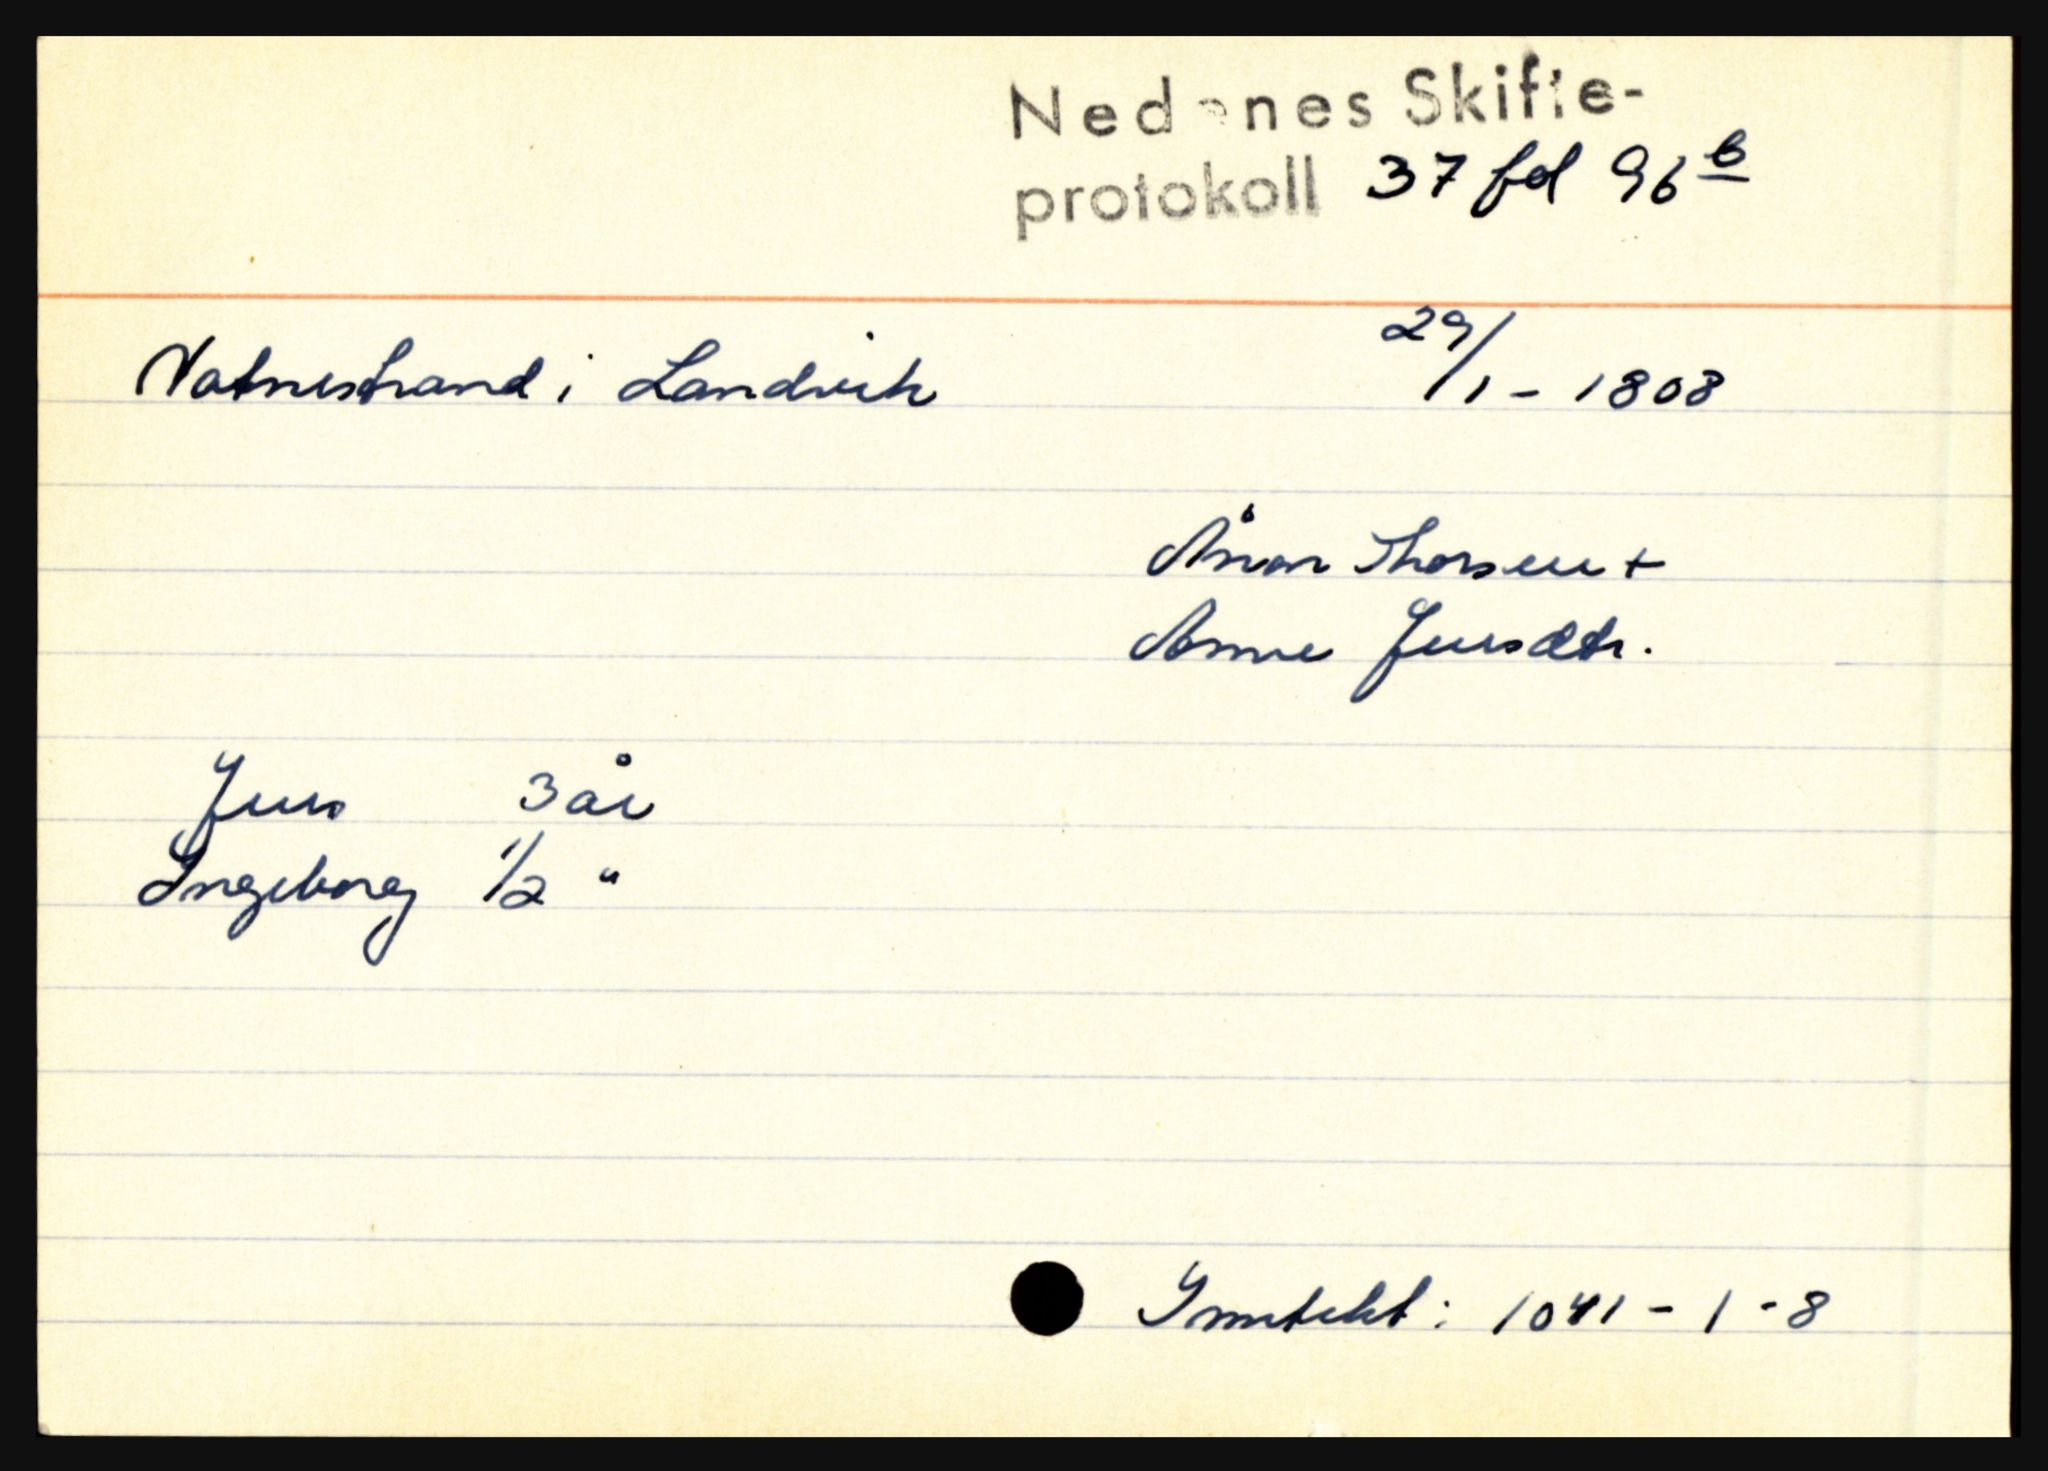 Nedenes Skifte-
protokoll 37 fol 96 b
Vatnestrand i Landvik 29/1 - 1808
Ånon Thorsen +
Anne Jensdtr.
Jens 3 år
Ingeborg 1/2 "
Inntekt: 1041 - 1 - 8